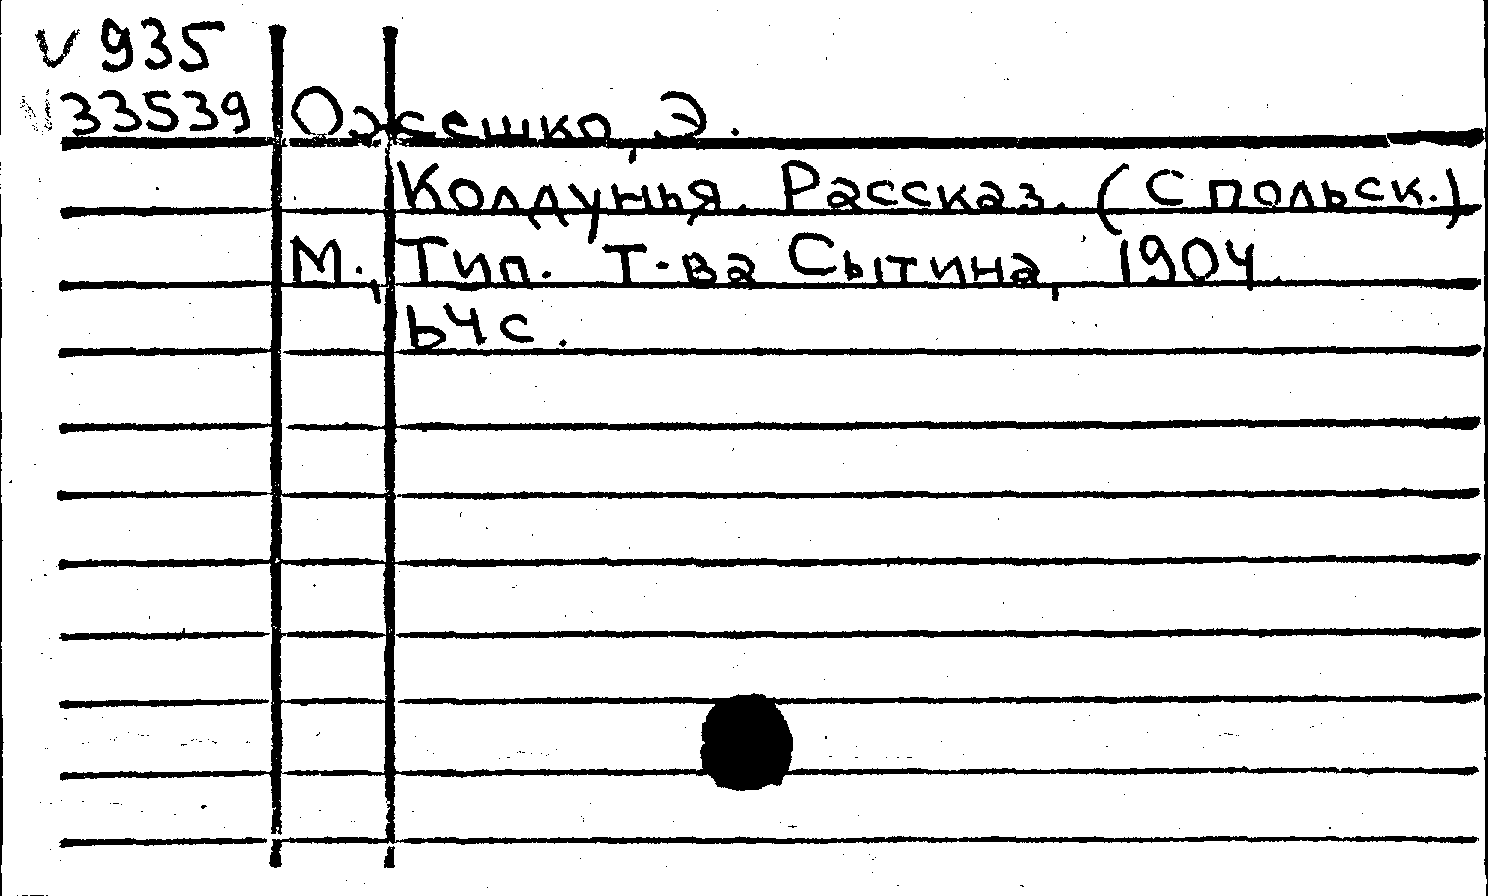 V 935
33539 Ожешко, Э.
Колдунья. Рассказ. (С польск.)
М., Тип. Т-ва Сытина, 1904.
64 с.